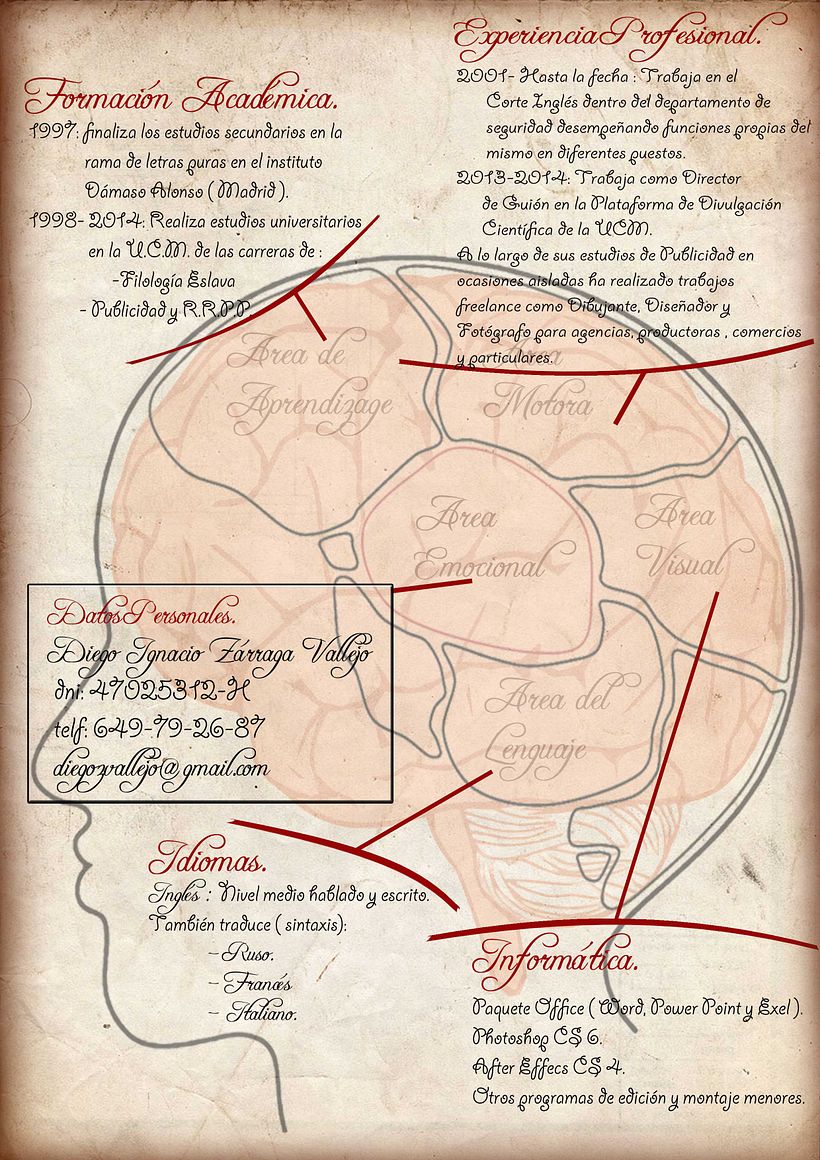 Formación Academica.
1997: finaliza los estudios secundarios en la
rama de letras puras en el instituto
Dámaso Alonso ( Madrid ).
1998- 2014: Realiza estudios universitarios
en la U.C.M. de las carreras de :
-Filología Eslava
- Publicidad y R.R.P.P.
Experiencia Profesional.
2001- Hasta la fecha : Trabaja en el
Corte Inglés dentro del departamento de
seguridad desempeñando funciones propias del
mismo en diferentes puestos.
2013-2014: Trabaja como Director
de Guión en la Plataforma de Divulgación
Científica de la UCM.
A lo largo de sus estudios de Publicidad en
ocasiones aisladas ha realizado trabajos
freelance como Dibujante, Diseñador y
Fotógrafo para agencias, productoras , comercios
y particulares.
Area de
Aprendizage
Area
Motora
Area
Emocional
Area
Visual
Area del
Lenguaje
Datos Personales.
Diego Ignacio Zárraga Vallejo
dni: 47025312-H
telf: 649-79-26-87
diegozvallejo@gmail.com
Idiomas.
Inglés : Nivel medio hablado y escrito.
También traduce ( sintaxis):
- Ruso.
- Francés
- Italiano.
Informática.
Paquete Office ( Word, Power Point y Exel ).
Photoshop CS 6.
After Effecs CS 4.
Otros programas de edición y montaje menores.